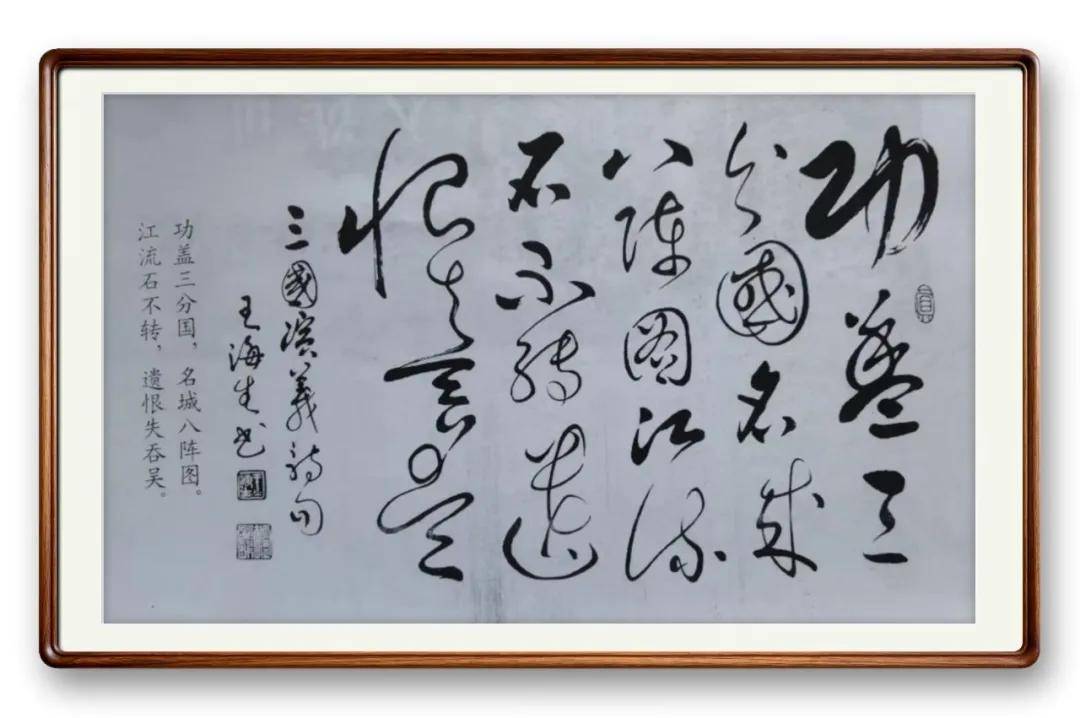 功盖三
分国名成
八陣图江流
石不转遗
恨失吞吴
三國演義诗句
王海生书
功盖三分国，名城八阵图。
江流石不转，遗恨失吞吴。